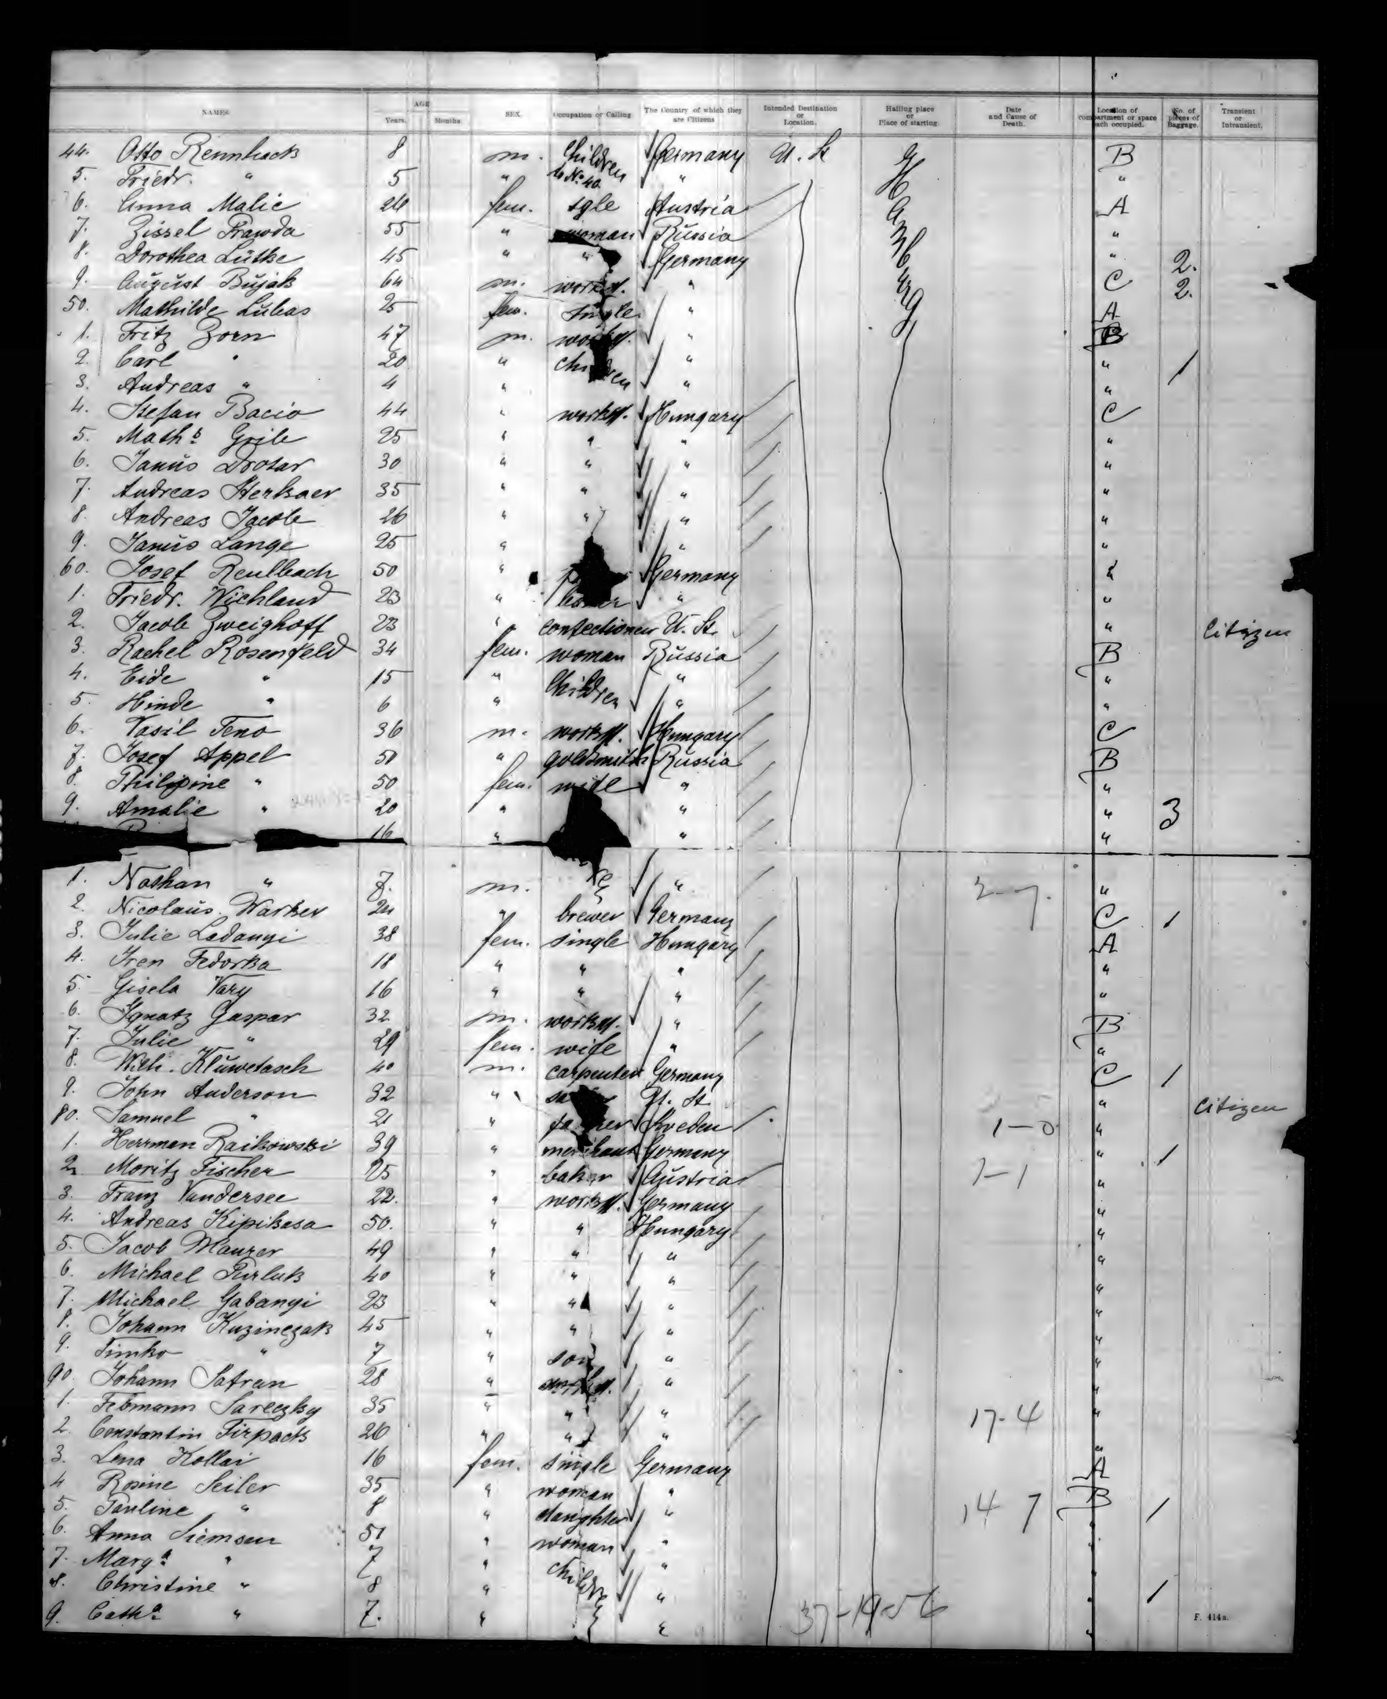 NAMES. AGE Years. Months SEX. Occupation or Calling The Country of which they are Citizens Intended Destination or Location. Hailing place or Place of starting. Date and Cause of Death. Location of compartment or space each occupied. No. of pieces of Baggage. Transient or Intransient.
44. Otto Rennhack 8 m. Children Germany U. St Hamburg B
5. Friedr. " 5 " to No 40. " "
6. Anna Malic fem. sgle Austria A
7. Zissel Prawda 55 " woman Russia "
8. Dorothea Lütke 45 " " Germany " 2.
9. August Bujak 64 m. workm. " C 2.
50. Mathilde Lukas 25 fem. single " A
1. Fritz Zorn 47 m. workm. " B
2. Carl " 20 " children " " 1
3. Andreas " 4 " " "
4. Stefan Bacio 44 " workm. Hungary C
5. Maths Grib 25 " " " "
6. Janus Drotar 30 " " " "
7. Andreas Herkaer 35 " " " "
8. Andreas Jacob 26 " " " "
9. Janus Lange 25 " " "
60. Josef Reulbach 50 " Germany "
1. Friedr. Wichland 23 " " "
2. Jacob Zweighoff 23 " confectioner U. St. " Citizen
3. Rachel Rosenfeld 34 fem. woman Russia B
4. Eide " 15 " Children " "
5. Hinde " 6 " " "
6. Vasil Feno 36 m. workm. Hungary C
7. Josef Appel 50 " goldsmith Russia B
8. Philipine " 50 fem. wife " "
9. Amalie " 20 " " " 3
16 " " "
1. Nathan " 7. m. " 2-7. "
2. Nicolaus Warker 24 " brewer Germany C 1
3. Julie Ladanyi 38 fem. single Hungary A
4. Iren Fedorka 18 " " " "
5. Gisela Vary 16 " " " "
6. Ignatz Gaspar 32 m. workm. " B
7. Julie " 29 fem. wife " "
8. Wilh. Kluwetasch 40 m. carpenter Germany C 1
9. John Anderson 32 " U. St " Citizen
80. Samuel " 21 " Sveden 1-0 "
1. Herrman Raikowski 39 " merchant Germany " 1
2. Moritz Fischer 25 " baker Austria 2-1 "
3. Franz Vandersee 22. " workm. Germany "
4. Andreas Kipikasa 50. " " Hungary "
5. Jacob Maurer 49 " " " "
6. Michael Purluk 40 " " " "
7. Michael Gabanyi 23 " " " "
8. Johann Kuzinczak 45 " " "
9. Timko " 7 " son " "
90. Johann Safran 28 " workm. " "
1. Sareczky 35 " " " 17-4 "
2. Constantin Firpack 26 " " " "
3. Lena Kollai 16 fem. single Germany A
4 Rosine Seiler 35 " woman " B
5. Pauline " 8 " daughter " 14 7 " 1
6. Anna Siemsen 51 " woman " "
7. Marga " 7 " children "
8. Christine " 8 " " 1
9. Catha " 7. " "
37-1956
F. 414a.